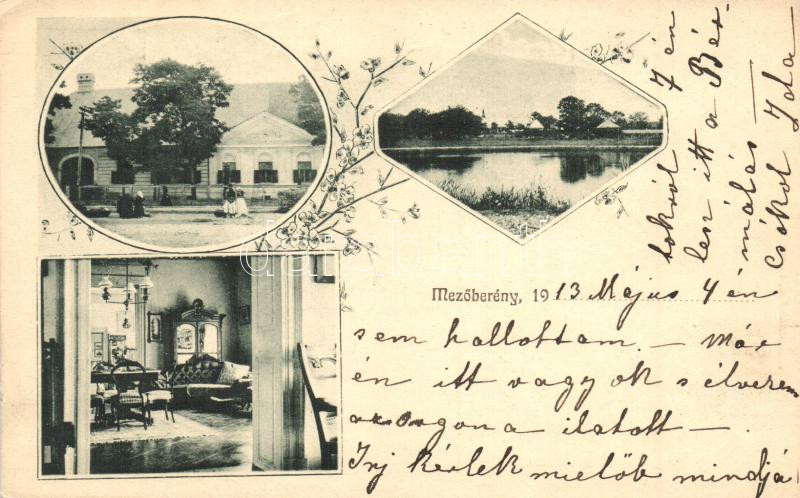 Mezőberény, 1913 Május 4 én
sem hallottam. — Már
én itt vagyok s élvezem
az orgona ilatott —
Irj kérlek mielőb mindjá
tokról 7 én
lesz itt a Bér-
málás —
Csókol Ida